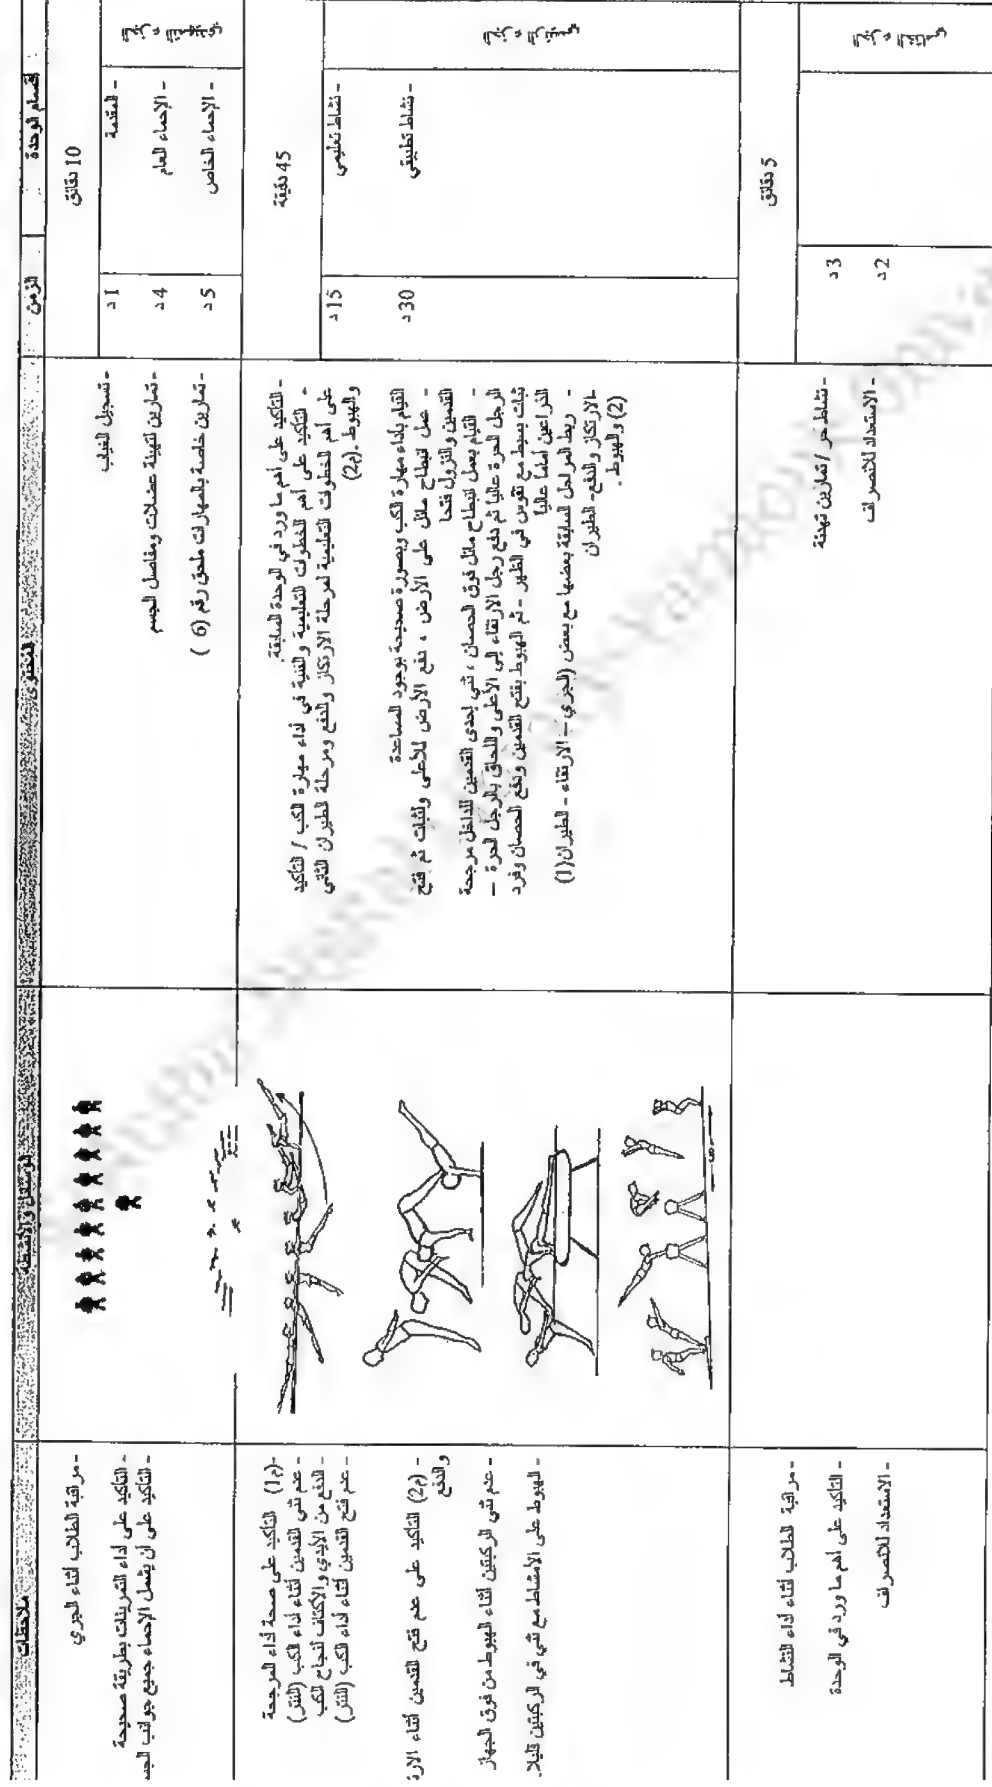 أقسام الوحدة
الزمن
المحتوى
الوسائل والأنشطة
ملاحظات
10 دقائق
- المقدمة
- الإحماء العام
- الإحماء الخاص
1 د
4 د
5 د
- تسجيل الغياب
- تمارين لتهيئة عضلات ومفاصل الجسم
- تمارين خاصة بالمهارات ملحق رقم (6)
- مراقبة الطلاب أثناء الجري
- التأكيد على أداء التمرينات بطريقة صحيحة
- التأكيد على أن يشمل الإحماء جميع جوانب الجسم
45 دقيقة
- نشاط تعليمي
- نشاط تطبيقي
15 د
30 د
- التأكيد على أهم ما ورد في الوحدة السابقة.
- التأكيد على أهم الخطوات التعليمية والفنية في أداء مهارة الكب / التأكيد
على أهم الخطوات التعليمية لمرحلة الارتكاز والدفع ومرحلة الطيران الثاني
والهبوط .(م2)
القيام بأداء مهارة الكب وبصورة صحيحة بوجود المساعدة
- عمل انبطاح مائل على الأرض ، دفع الأرض للأعلى والثبات ثم فتح
القدمين والنزول فتحا
- القيام بعمل انبطاح مائل فوق الحصان ، ثني إحدى القدمين للداخل مرجحة
الرجل الحرة عاليا ثم دفع رجل الارتقاء إلى الأعلى واللحاق بالرجل الحرة –
ثبات بسيط مع تقوس في الظهر - ثم الهبوط بفتح القدمين ودفع الحصان وفرد
الذراعين أماما عاليا
- ربط المراحل السابقة بعضها مع بعض (الجري – الارتقاء - الطيران(1)
-الارتكاز والدفع- الطيران
(2) والهبوط .
-(م1) التأكيد على صحة أداء المرجحة
- عدم ثني القدمين أثناء أداء الكب (النتر)
- الدفع من الأيدي والأكتاف لنجاح الكب
- عدم فتح القدمين أثناء أداء الكب (النتر)
- (م2) التأكيد على عدم فتح القدمين أثناء
والدفع
- عدم ثني الركبتين أثناء الهبوط من فوق الجهاز
- الهبوط على الأمشاط مع ثني في الركبتين قليلا.
5 دقائق
3 د
2 د
- نشاط حر / تمارين تهدئة
- الاستعداد للانصراف
- مراقبة الطلاب أثناء أداء النشاط
- التأكيد على أهم ما ورد في الوحدة
- الاستعداد للانصراف